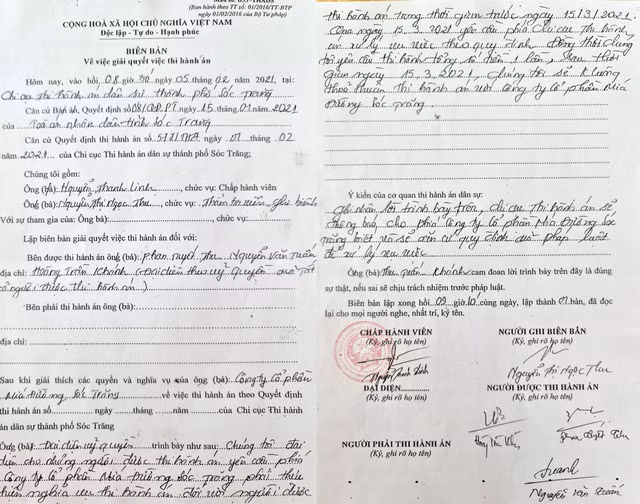 (Ban hành theo TT số: 01/2016/TT-BTP
ngày 01/02/2016 của Bộ Tư pháp)
CỘNG HOÀ XÃ HỘI CHỦ NGHĨA VIỆT NAM
Độc lập - Tự do - Hạnh phúc
BIÊN BẢN
Về việc giải quyết thi hành án
Hôm nay, vào hồi 08 giờ 20 ngày 05 tháng 02 năm 2021, tại:
Chi cục Thi hành án dân sự thành phố Sóc Trăng
Căn cứ Bản án, Quyết định số 08/ ngày 15 tháng 01 năm 2021
của Toà án nhân dân tỉnh Sóc Trăng
Căn cứ Quyết định thi hành án số 511/THA ngày 01 tháng 02
năm 2021 của Chi cục Thi hành án dân sự thành phố Sóc Trăng;
Chúng tôi gồm:
Ông (bà): Nguyễn Thanh Linh, chức vụ: Chấp hành viên
Ông (bà): Nguyễn Thị Ngọc Thu, chức vụ: Thẩm tra viên, ghi biên bản
Với sự tham gia của: Ông bà:, chức vụ:
Lập biên bản giải quyết việc thi hành án đối với:
Bên được thi hành án ông (bà): Phan Tuyết Thu, Nguyễn Văn Tuấn
địa chỉ: Hoàng Trần Khánh (Đại diện theo uỷ quyền của
người được thi hành án)
Bên phải thi hành án ông (bà):
địa chỉ:
Sau khi giải thích các quyền và nghĩa vụ của ông (bà): Công ty Cổ phần
Mía Đường Sóc Trăng về việc thi hành án theo Quyết định
thi hành án số ngày tháng năm của Chi cục Thi hành
án dân sự thành phố Sóc Trăng
Ông (bà): Đại diện uỷ quyền trình bày như sau: Chúng tôi đại
diện cho những người được thi hành án yêu cầu phía
Công ty Cổ phần Mía Đường Sóc Trăng phải thực
hiện nghĩa vụ thi hành án đối với người được
thi hành án trong thời gian trước ngày 15/3/2021.
Qua ngày 15.3.2021 yêu cầu phía Chi cục Thi hành
án xử lý vụ việc theo quy định. Đồng thời chúng
tôi yêu cầu thi hành tổng số tiền 1 lần, sau thời
gian ngày 15.3.2021, chúng tôi sẽ không
thoả thuận thi hành án với Công ty Cổ phần Mía
Đường Sóc Trăng
Ý kiến của cơ quan thi hành án dân sự:
Ghi nhận lời trình bày trên, Chi cục Thi hành án sẽ
thông báo cho phía Công ty Cổ phần Mía Đường Sóc
Trăng biết và sẽ căn cứ quy định của pháp luật
để xử lý vụ việc
Ông (bà) Thu, Tuấn, Khánh cam đoan lời trình bày trên đây là đúng
sự thật, nếu sai sẽ chịu trách nhiệm trước pháp luật.
Biên bản lập xong hồi 09 giờ 10 cùng ngày, lập thành 01 bản, đã đọc
lại cho mọi người nghe, nhất trí, ký tên.
CHẤP HÀNH VIÊN
(Ký, ghi rõ họ tên)
NGƯỜI GHI BIÊN BẢN
(Ký, ghi rõ họ tên)
Nguyễn Thanh Linh
Nguyễn Thị Ngọc Thu
ĐẠI DIỆN
(Ký, ghi rõ họ tên)
NGƯỜI ĐƯỢC THI HÀNH ÁN
(Ký, ghi rõ họ tên)
NGƯỜI PHẢI THI HÀNH ÁN
(Ký, ghi rõ họ tên)
Nguyễn Văn Tuấn